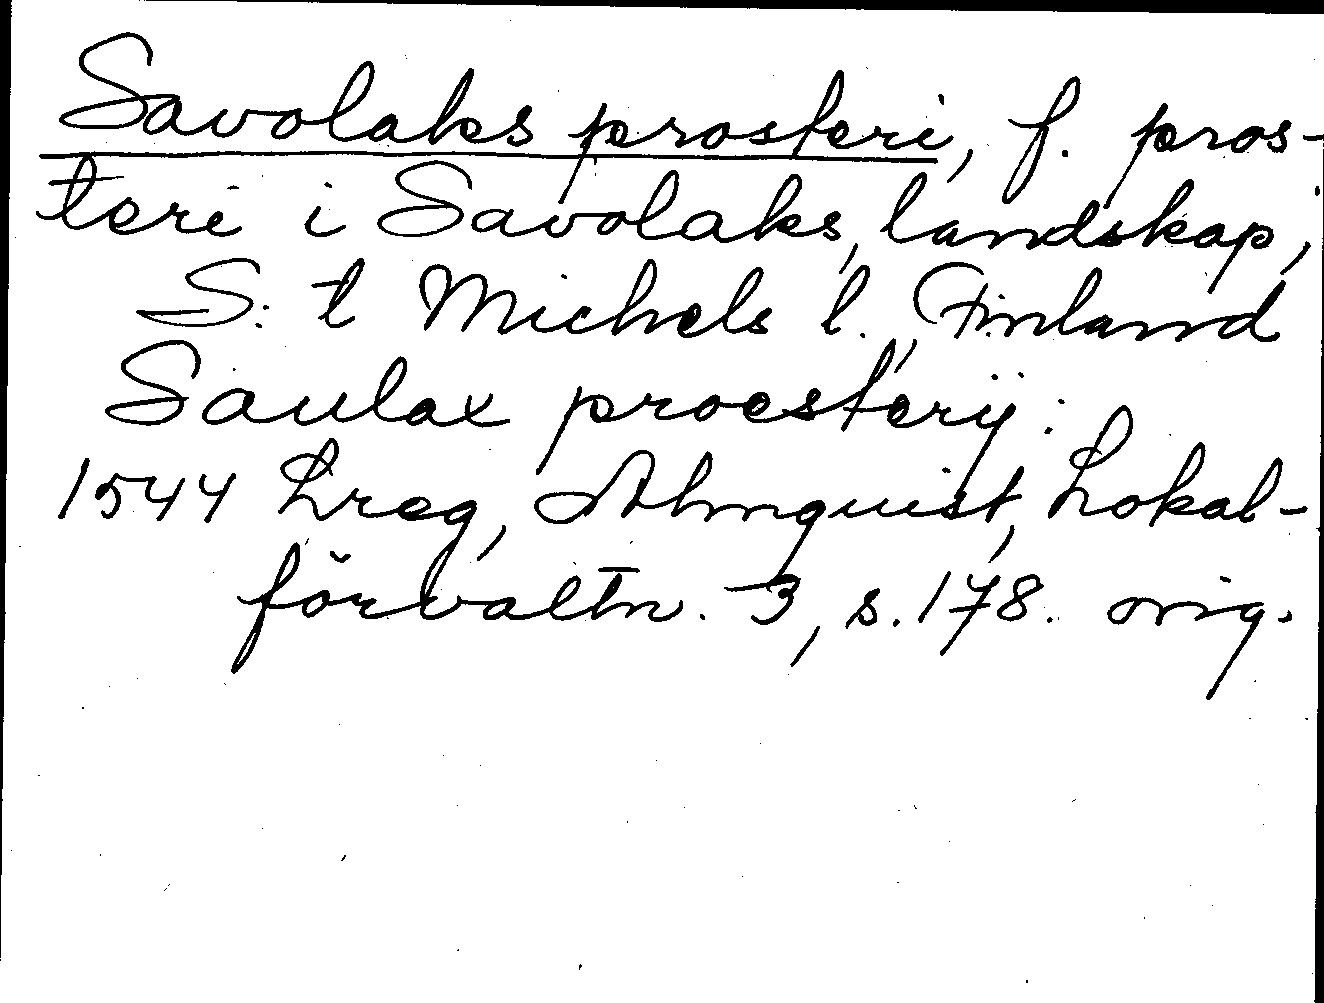 Savolaks prosteri, f. pros-
teri i Savolaks, landskap,
S:t Michels l., Finland
Saulax proesterÿ:
1544 Lreg, Almquist, Lokal-
förvaltn. 3, s. 178. orig.